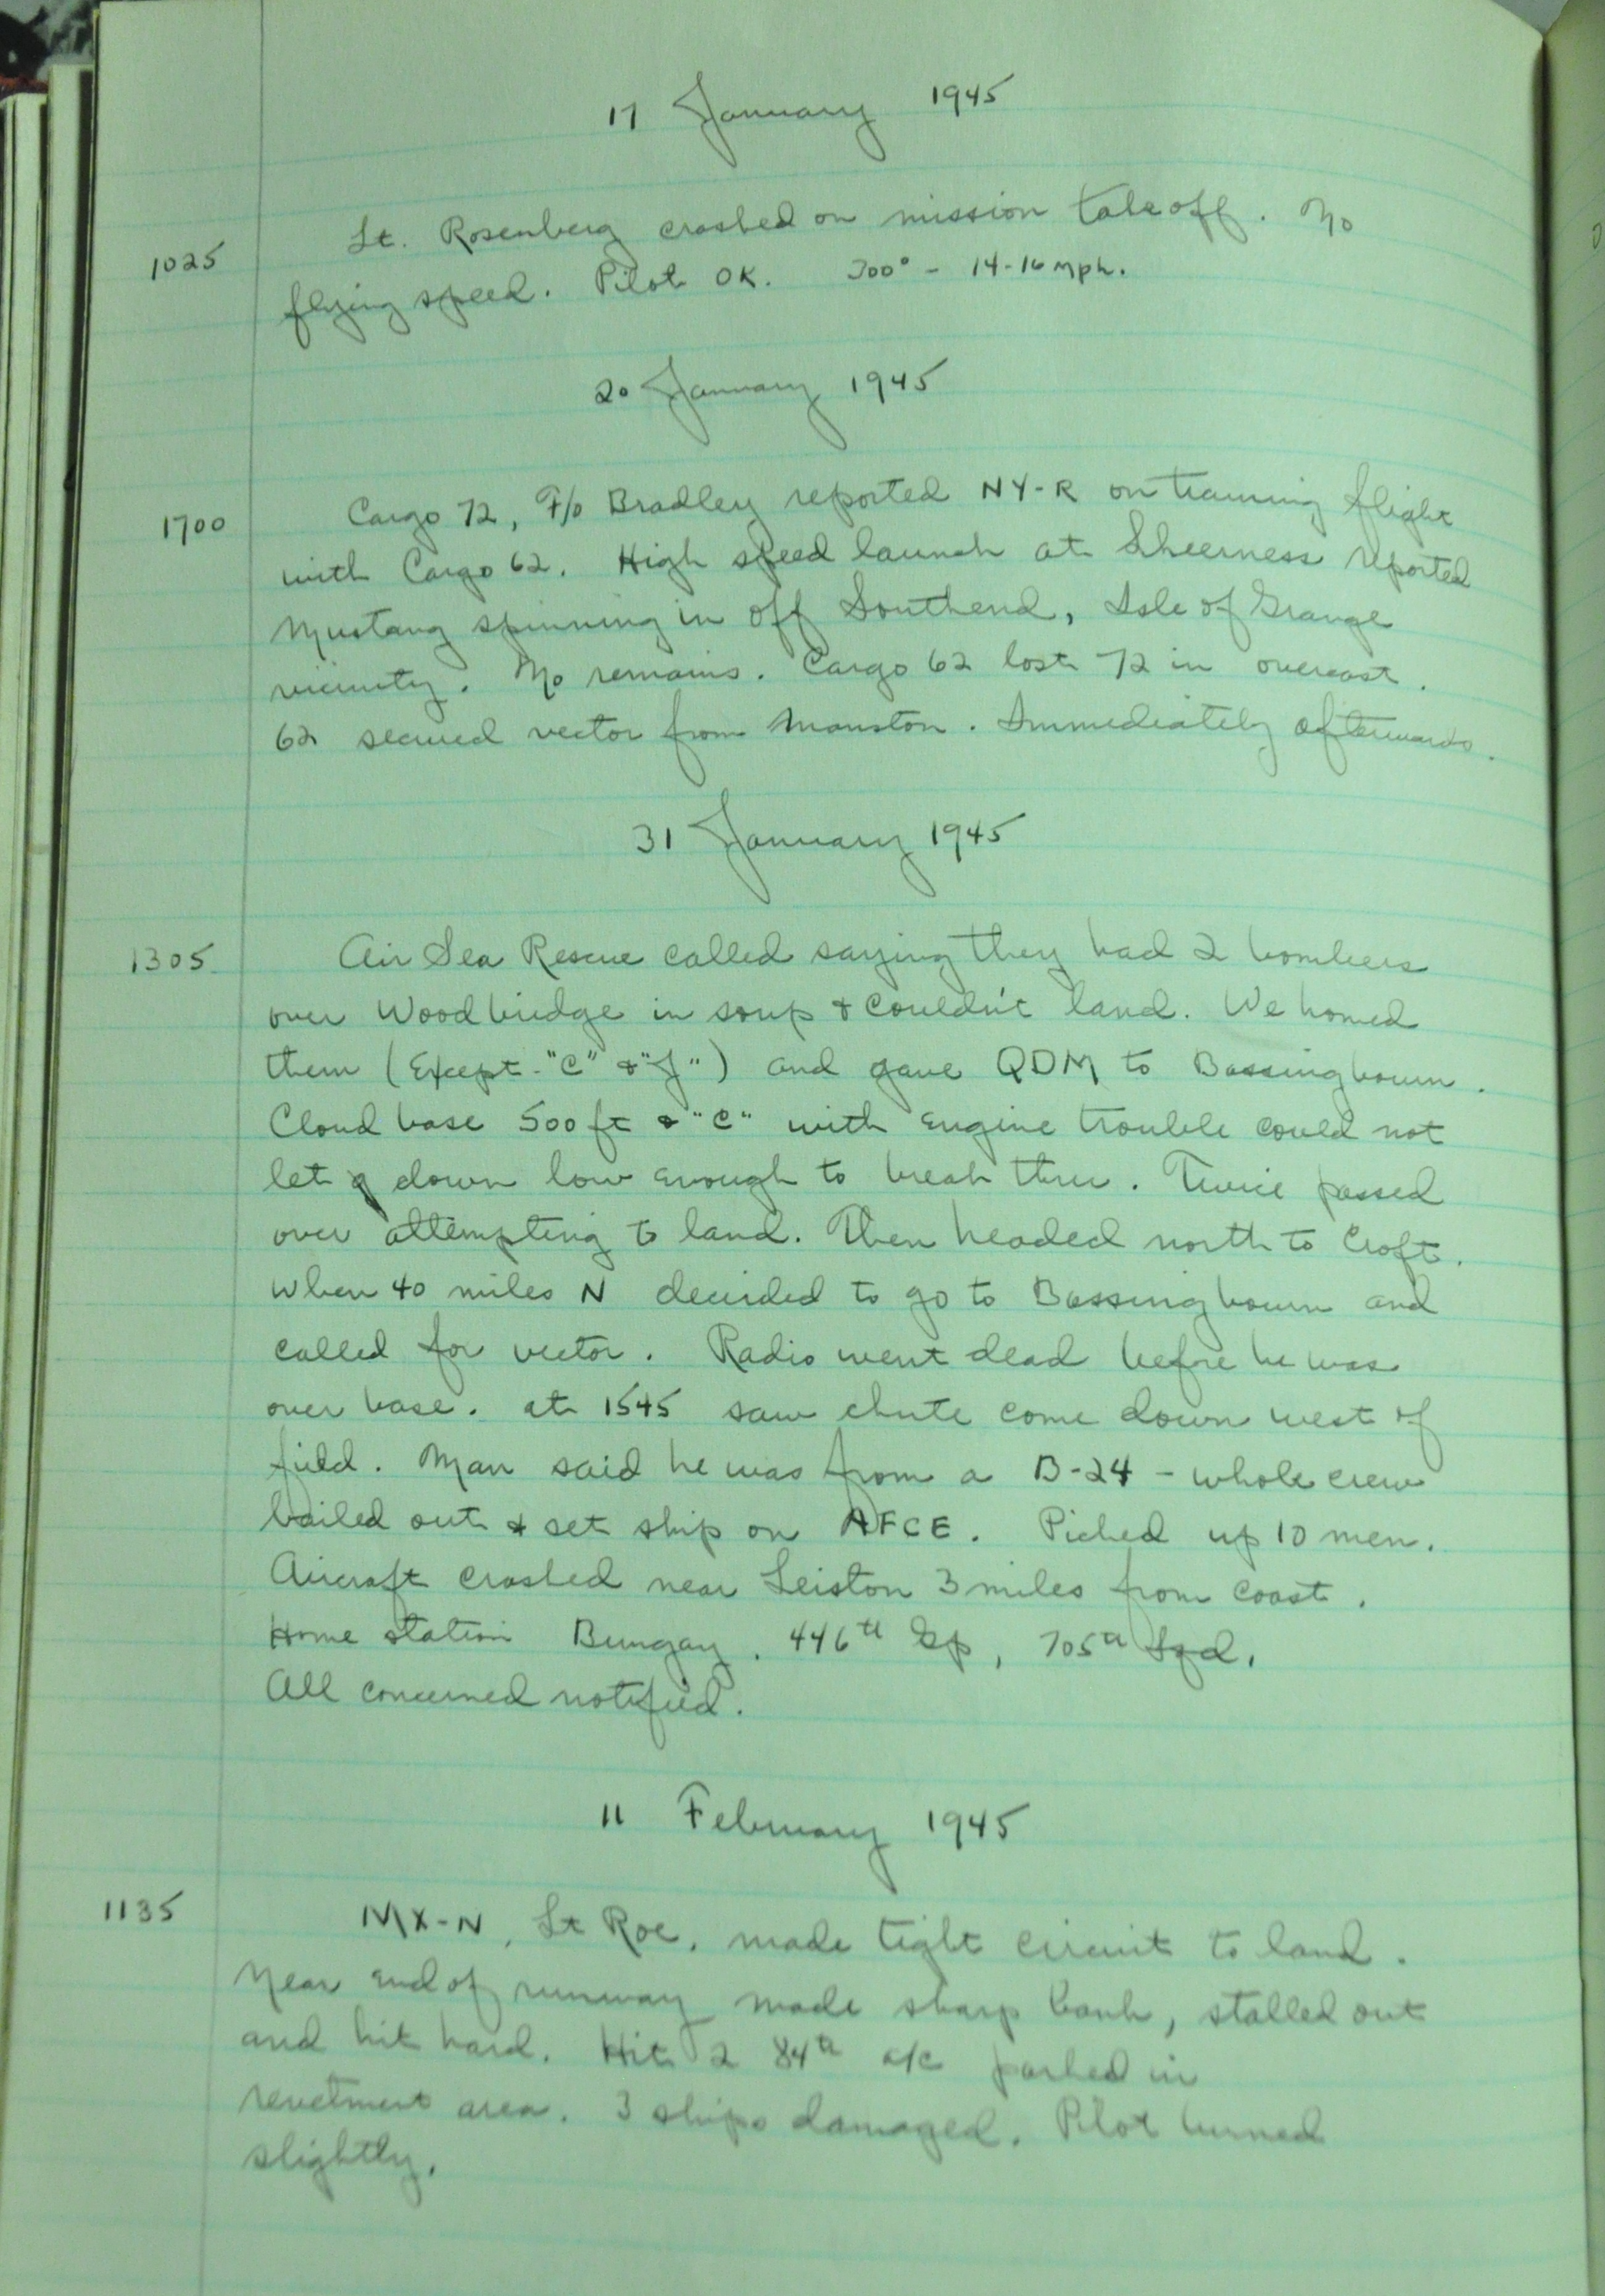 17 January 1945
1025 Lt. Rosenberg crashed on mission takeoff. No
flying speed. Pilot OK. 300° - 14-16 mph.
20 January 1945
1700 Cargo 72, F/O Bradley reported NY-R on training flight
with Cargo 62. High speed launch at Sheerness reported
Mustang spinning in off Southend, Isle of Grange
vicinity. No remains. Cargo 62 lost 72 in overcast.
62 secured vector from Manston. Immediately afterwards.
31 January 1945
1305 Air Sea Rescue called saying they had 2 bombers
over Woodbridge in soup & couldn't land. We homed
them (Except "C" & "J") and gave QDM to Bassingbourn.
Cloud base 500 ft & "C" with engine trouble could not
let down low enough to break thru. Twice passed
over attempting to land. Then headed north to Croft.
When 40 miles N decided to go to Bassingbourn and
called for vector. Radio went dead before he was
over base. At 1545 saw chute come down west of
field. Man said he was from a B-24 - whole crew
bailed out & set ship on AFCE. Picked up 10 men.
Aircraft crashed near Leiston 3 miles from coast.
Home station Bungay. 446th Gp, 705th Sqd.
All concerned notified.
11 February 1945
1135 MX-N, Lt Roe, made tight circuit to land.
Near end of runway made sharp bank, stalled out
and hit hard. Hit 2 84th a/c parked in
revetment area. 3 ships damaged. Pilot burned
slightly.